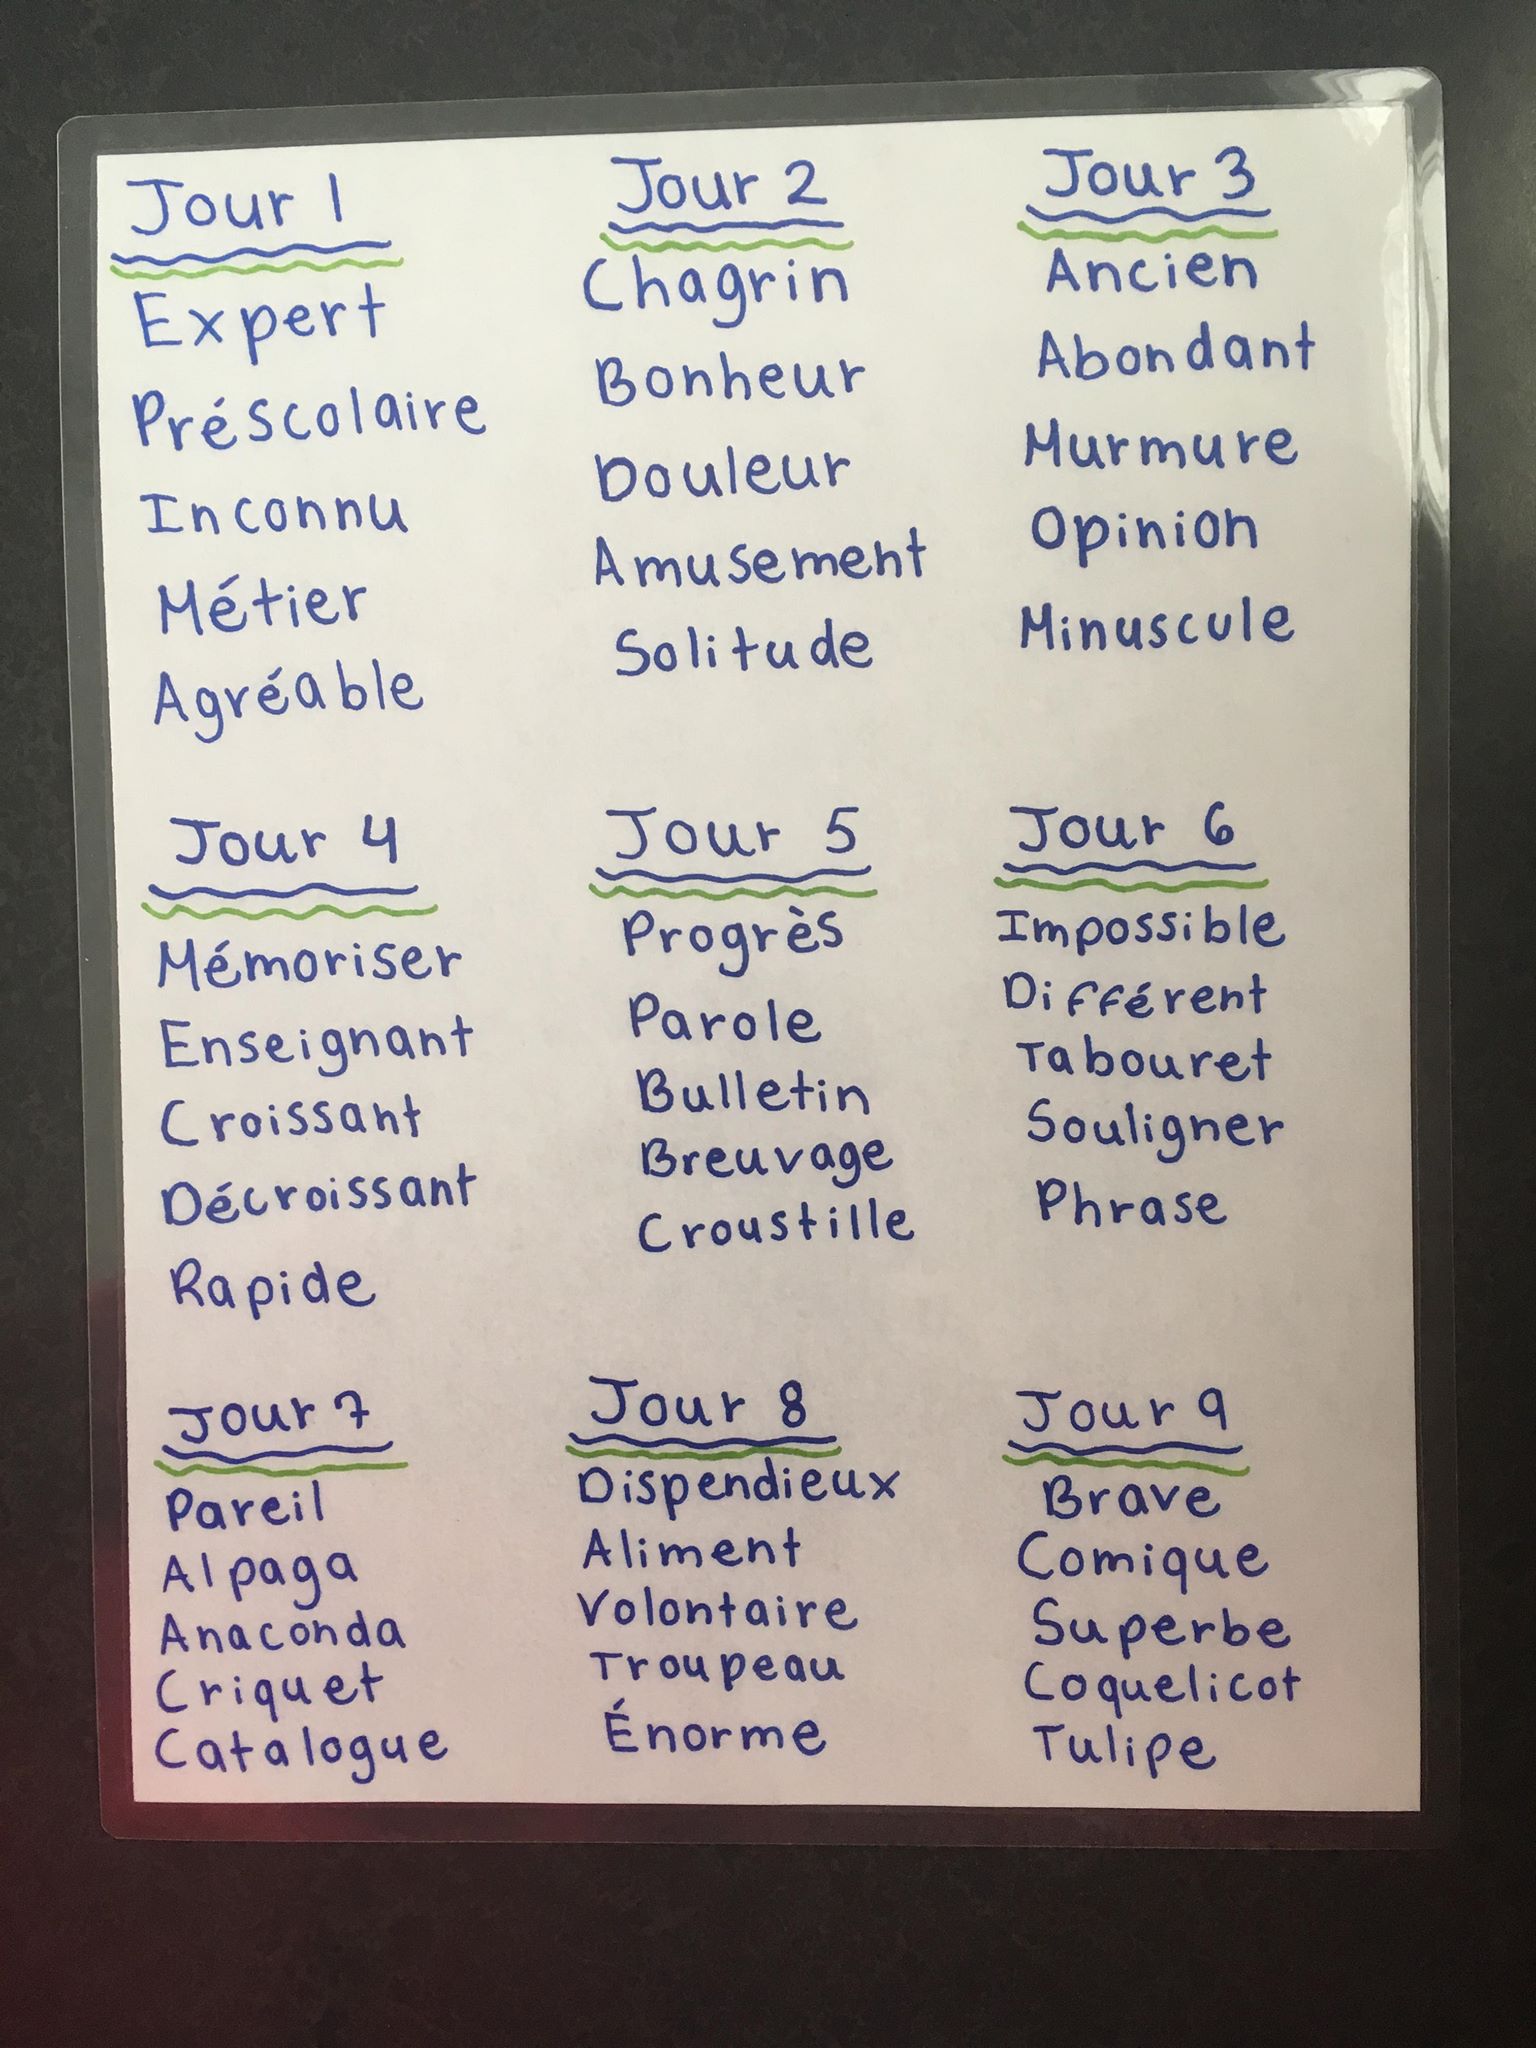 Jour 1
Expert
Préscolaire
Inconnu
Métier
Agréable
Jour 2
Chagrin
Bonheur
Douleur
Amusement
Solitude
Jour 3
Ancien
Abondant
Murmure
Opinion
Minuscule
Jour 4
Mémoriser
Enseignant
Croissant
Décroissant
Rapide
Jour 5
Progrès
Parole
Bulletin
Breuvage
Croustille
Jour 6
Impossible
Différent
Tabouret
Souligner
Phrase
Jour 7
Pareil
Alpaga
Anaconda
Criquet
Catalogue
Jour 8
Dispendieux
Aliment
Volontaire
Troupeau
Énorme
Jour 9
Brave
Comique
Superbe
Coquelicot
Tulipe